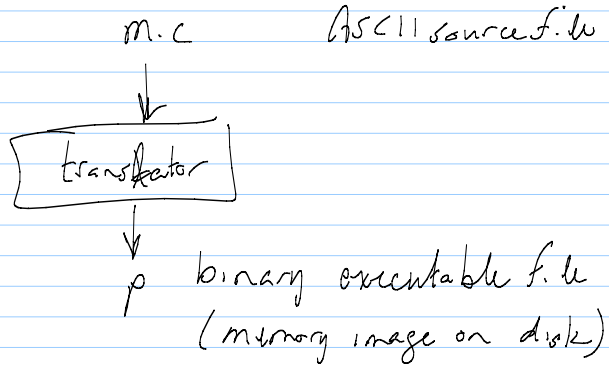 m.c ASCII source file
translator
p binary executable file
(memory image on disk)